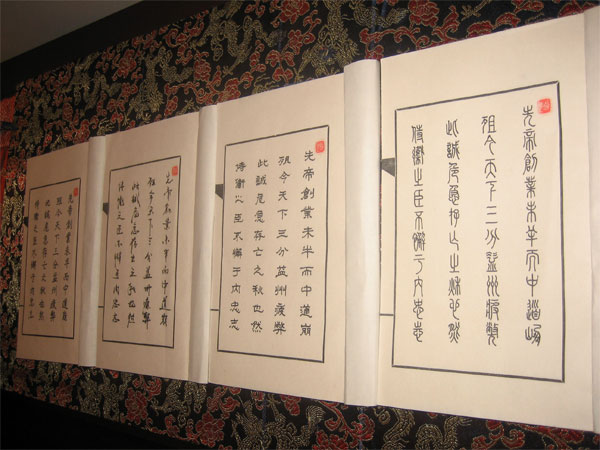 先帝創業未半而中道崩
殂今天下三分益州疲弊
此誠危急存亡之秋也然
侍衛之臣不懈于内忠志
先帝創業未半而中道崩
殂今天下三分益州疲弊
此誠危急存亡之秋也然
侍衛之臣不懈于内忠志
先帝創業未半而中道崩
殂今天下三分益州疲弊
此誠危急存亡之秋也然
侍衛之臣不懈于内忠志
先帝創業未半而中道崩
殂今天下三分益州疲弊
此誠危急存亡之秋也然
侍衛之臣不懈于内忠志